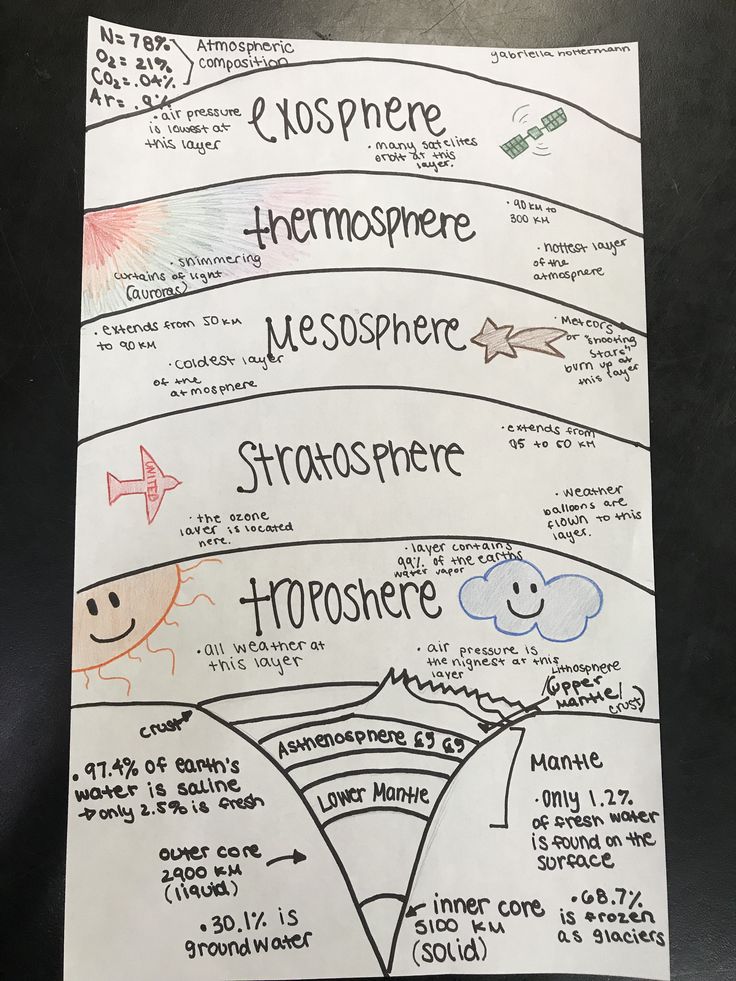 N = 78%
O2 = 21%
CO2 = .04%
Ar = .9%
Atmospheric
composition
gabriella hottermann
exosphere
• air pressure
is lowest at
this layer
• many satelites
orbit at this
layer.
thermosphere
• 90 KM to
300 KM
• shimmering
curtains of light
(auroras)
• hottest layer
of the
atmosphere
Mesosphere
• extends from 50 KM
to 90 KM
• coldest layer
of the
atmosphere
• Meteors
or "shooting
stars"
burn up at
this layer
stratosphere
• extends from
15 to 50 KM
UNITED
• the ozone
layer is located
here.
• weather
balloons are
flown to this
layer.
• layer contains
99% of the earths
water vapor
troposhere
• all weather at
this layer
• air pressure is
the highest at this
layer
Lithosphere
(upper
Mantle/
crust)
crust
Asthenosphere
Lower Mantle
Mantle
• 97.4% of earth's
water is saline
→ only 2.5% is fresh
• Only 1.2%
of fresh water
is found on the
surface
outer core
2900 KM
(liquid)
inner core
5100 KM
(solid)
• 30.1% is
groundwater
• 68.7%
is frozen
as glaciers